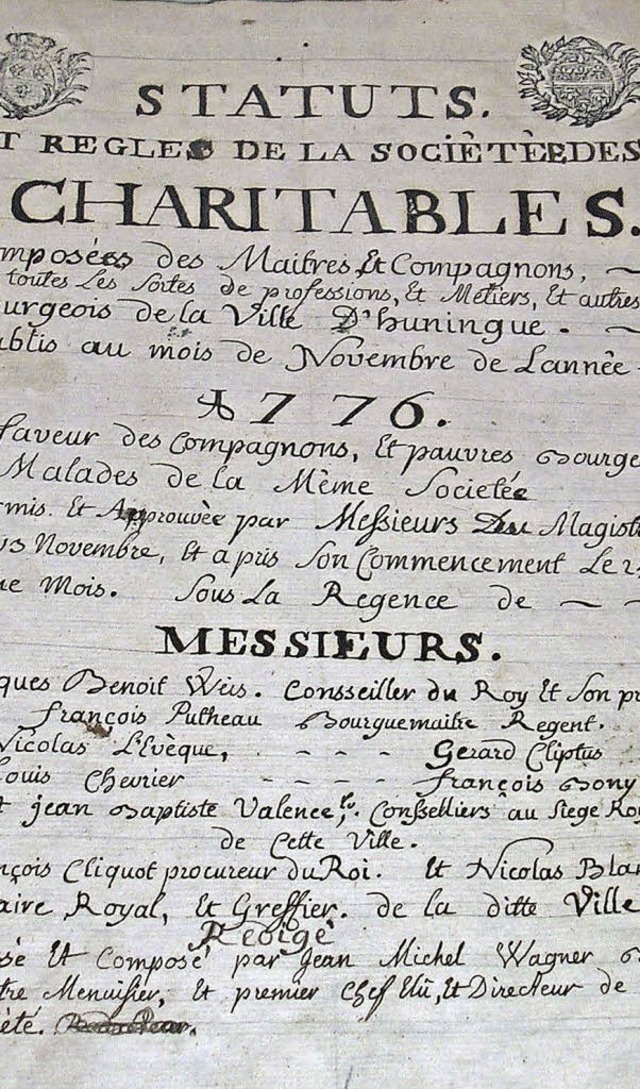 STATUTS.
T REGLES DE LA SOCIÈTÈE DES
CHARITABLES.
mposées des Maitres Et Compagnons, ~
toutes Les Sortes de professions, Et Mètiers, Et autres
urgeois de la Ville D'huningue. ~
ablis au mois de Novembre de Lannèe
1776.
faveur des Compagnons, Et pauvres Bourge
Malades de la Mème Societée
rmis. Et Approuvèe par Messieurs Du Magist
Novembre, Et a pris Son Commencement Le 2
ue Mois. Sous La Regence de ~ ~
MESSIEURS.
ques Benoit Weis. Consseiller du Roy Et Son pr
françois Putheau Bourguemaitre Regent.
Nicolas L'Evèque, - - - Gerard Cliptus
Louis Chevrier - - - - françois Bony
t jean Baptiste Valence. Conssellièrs au Siege Roy
de Cette Ville.
nçois Cliquot procureur du Roi. Et Nicolas Blan
aire Royal, Et Greffier. de la ditte Ville
Redigè
sè Et Composè par Jean Michel Wagner
tre Menuisier, Et premier Chef Elü, Et Directeur de
iété.